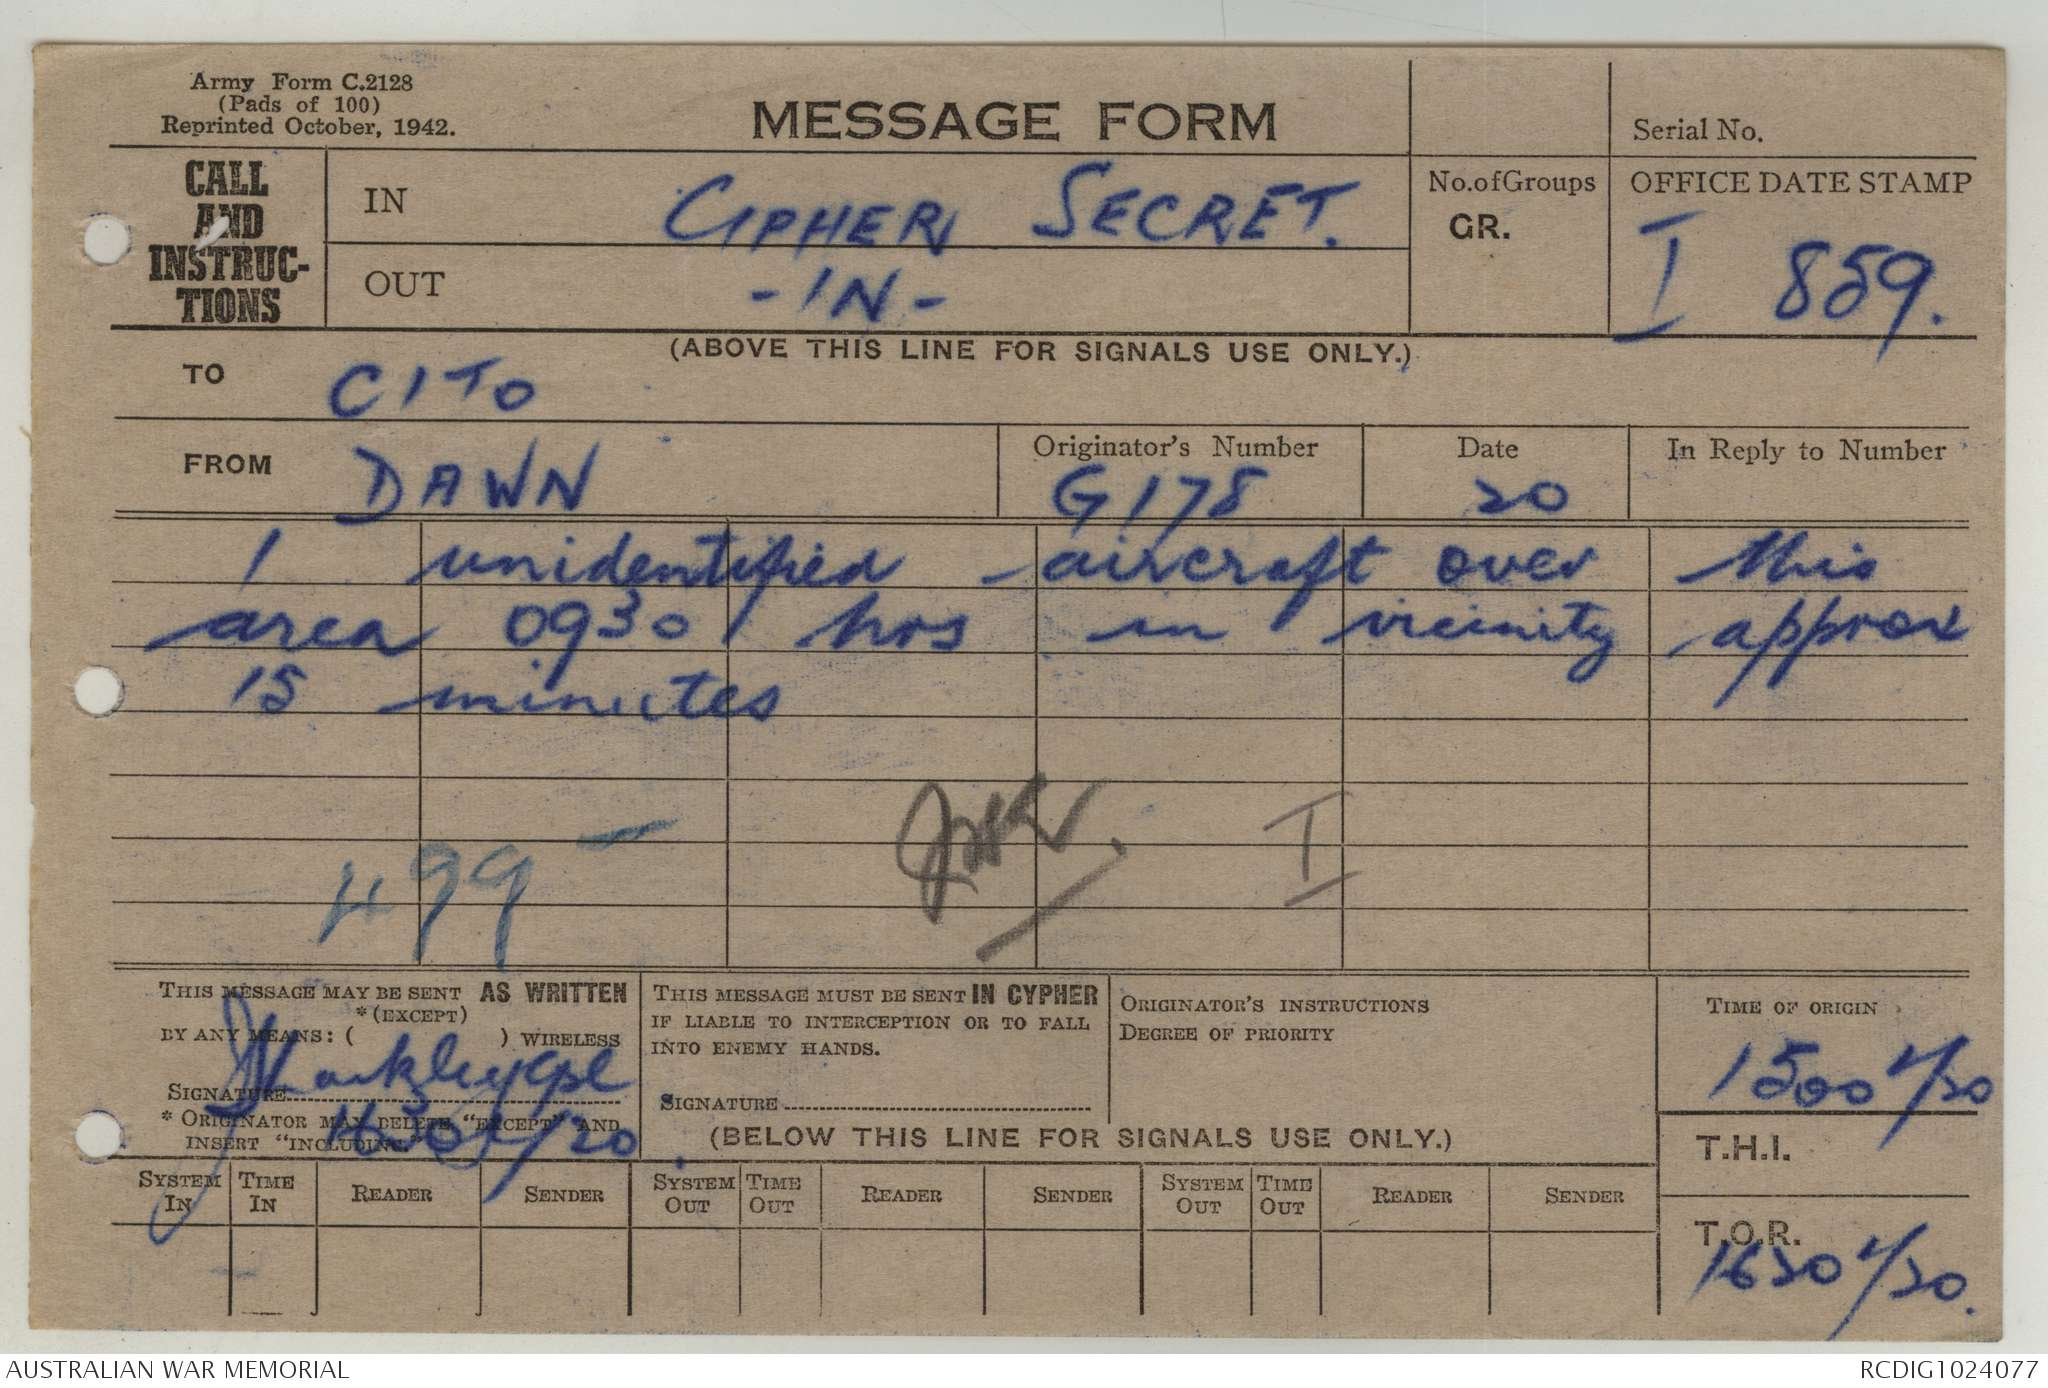 Army Form C.2128
(Pads of 100)
Reprinted October, 1942.
MESSAGE FORM
Serial No.
CALL AND INSTRUC-TIONS
IN
CIPHER SECRET.
No.ofGroups
GR.
OFFICE DATE STAMP
I 859.
OUT
- IN -
(ABOVE THIS LINE FOR SIGNALS USE ONLY.)
TO
CITO
FROM
DAWN
Originator's Number
G178
Date
20
In Reply to Number
1 unidentified aircraft over this
area 0930 hrs in vicinity approx
15 minutes
I
499
THIS MESSAGE MAY BE SENT AS WRITTEN
*(EXCEPT)
BY ANY MEANS: ( ) WIRELESS
SIGNATURE
* ORIGINATOR MAY DELETE "EXCEPT" AND
INSERT "INCLUDING."
THIS MESSAGE MUST BE SENT IN CYPHER
IF LIABLE TO INTERCEPTION OR TO FALL
INTO ENEMY HANDS.
SIGNATURE
ORIGINATOR'S INSTRUCTIONS
DEGREE OF PRIORITY
TIME OF ORIGIN
1500 4/20
(BELOW THIS LINE FOR SIGNALS USE ONLY.)
T.H.I.
SYSTEM IN
TIME IN
READER
SENDER
SYSTEM OUT
TIME OUT
READER
SENDER
SYSTEM OUT
TIME OUT
READER
SENDER
T.O.R.
1620 4/20.
AUSTRALIAN WAR MEMORIAL
RCDIG1024077